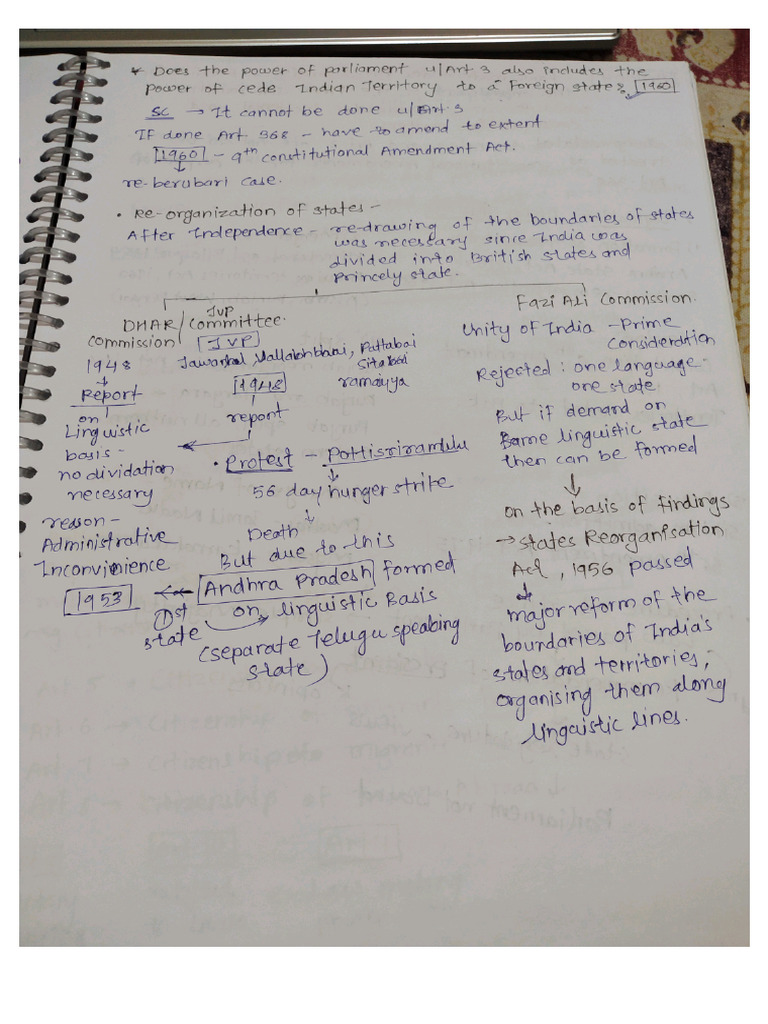 * Does the power of parliament u/Art 3 also includes the
power of cede Indian Territory to a Foreign state? [1960]
SC → It cannot be done u/Art.3
If done Art 368 - have to amend to extent
[1960] - 9th constitutional Amendment Act.
re-berubari case.
• Re-organization of states -
After Independence - re-drawing of the boundaries of states
was necessary since India was
divided into British states and
Princely state.
DHAR
commission
1948
Report
on
Linguistic
basis -
no dividation
necessary
reason -
Administrative
Inconvinience
JVP
Committee
[JVP]
Jawarhal Vallabhbhai, Pattabai
Sitabbai
ramaiya
[1948]
report
• Protest - Pottisriramlulu
56 day hunger strike
Death
But due to this
[1953] ← Andhra Pradesh formed
1st
state
on linguistic Basis
(separate Telugu speaking
state)
Fazi Ali Commission.
Unity of India - Prime
Consideration
Rejected: one language -
one state
But if demand on
Same linguistic state
then can be formed
on the basis of findings
→ states Reorganisation
Act, 1956 passed
major reform of the
boundaries of India's
states and territories,
organising them along
linguistic lines.